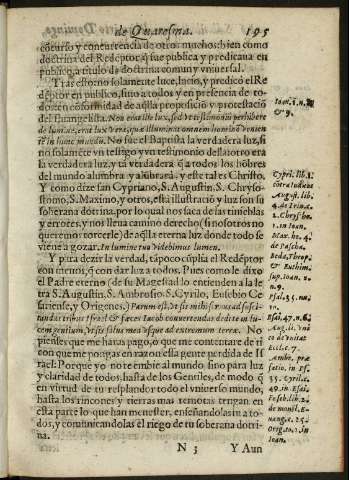 de Quaresma. 195
cõcurso y concurrencia de otros muchos: bien como
doctrina del Redẽptor q̃ fue publica y predicaua en
publico, a titulo de doctrina comun y vniuersal.
Tras esto no solamente luce, lucio, y predicò el Re
dẽptor en publico, sino a todos y en presencia de to-
dos: en cõformidad de aq̃lla proposiciõ y protestaciõ
del Euangelista. Non erat ille lux, sed vt testimoniũ perhibere
de lumine, erat lux vera, quæ illuminat omnem hominẽ venien
tẽ in hunc mundũ. No fue el Baptista la verdadera luz, si
no solamẽte vn testigo y vn testimonio della: otro era
la verdadera luz, y tã verdadera q̃ a todos los hõbres
del mundo alumbra y alũbrarà: y este tal es Christo.
Y como dize san Cypriano, S. Augustin. S. Chryso-
stomo, S. Maximo, y otros, esta illustraciõ y luz son su
soberana dotrina, por lo qual nos saca de las tinieblas
y errores, y nos lleua camino derecho (si nosotros no
queremos torcerle) do aq̃lla eterna luz donde todo se
viene a gozar. In lumine tuo videbimus lumen.
Y para dezir la verdad, tãpoco cũplia el Redẽptor
con menos, q̃ con dar luz a todos. Pues como le dixo
el Padre eterno (de su Magestad lo entienden a la le
tra S. Augustin, S. Ambrosio. S. Cyrilo, Eusebio Ce-
sariense, y Origenes.) Parum est vt sis mihi seruus ad susci-
tandas tribus Israel & fæces Iacob conuertendas dedi te in lu-
cem gentium, vt sis salus mea vsque ad extremum terræ. No
pienses que me haras pago, o que me contentare de ti
con que me pongas en razon essa gente perdida de Is
rael: Porque yo no te embie al mundo sino para luz
y claridad de todos, hasta de los Gentiles, de modo q̃
en virtud de tu resplandor todo el vniuerso mundo,
hasta los rincones y tierras mas remotas tengan en
esta parte lo que han menester, enseñandolas in a to-
dos, y comunicandolas el riego de tu soberana dotri
na.
N 3 Y Aun
Ioan. 1. n. 8
& 9.
Cypri. lib. 1.
cõtra Iudæos
August. lib.
4. de Trini.
2. Chryf. ho
1. in Ioan.
Max. ho. 4.
de Pascha.
Beda, Theop.
& Euthim.
sup. Ioan. 1.
n. 9.
Psal. 35. nu.
10.
Esai. 47. n. 6.
Aug. li. vni
co de vnitat
Eccl. c. 7.
Ambr. præ
fatio. in Ps.
35. Cyrila.
49. in Esai.
Euseb. lib. 2
de monst. E-
uange. c. 25.
Orig. to. 2. in
Ioan.